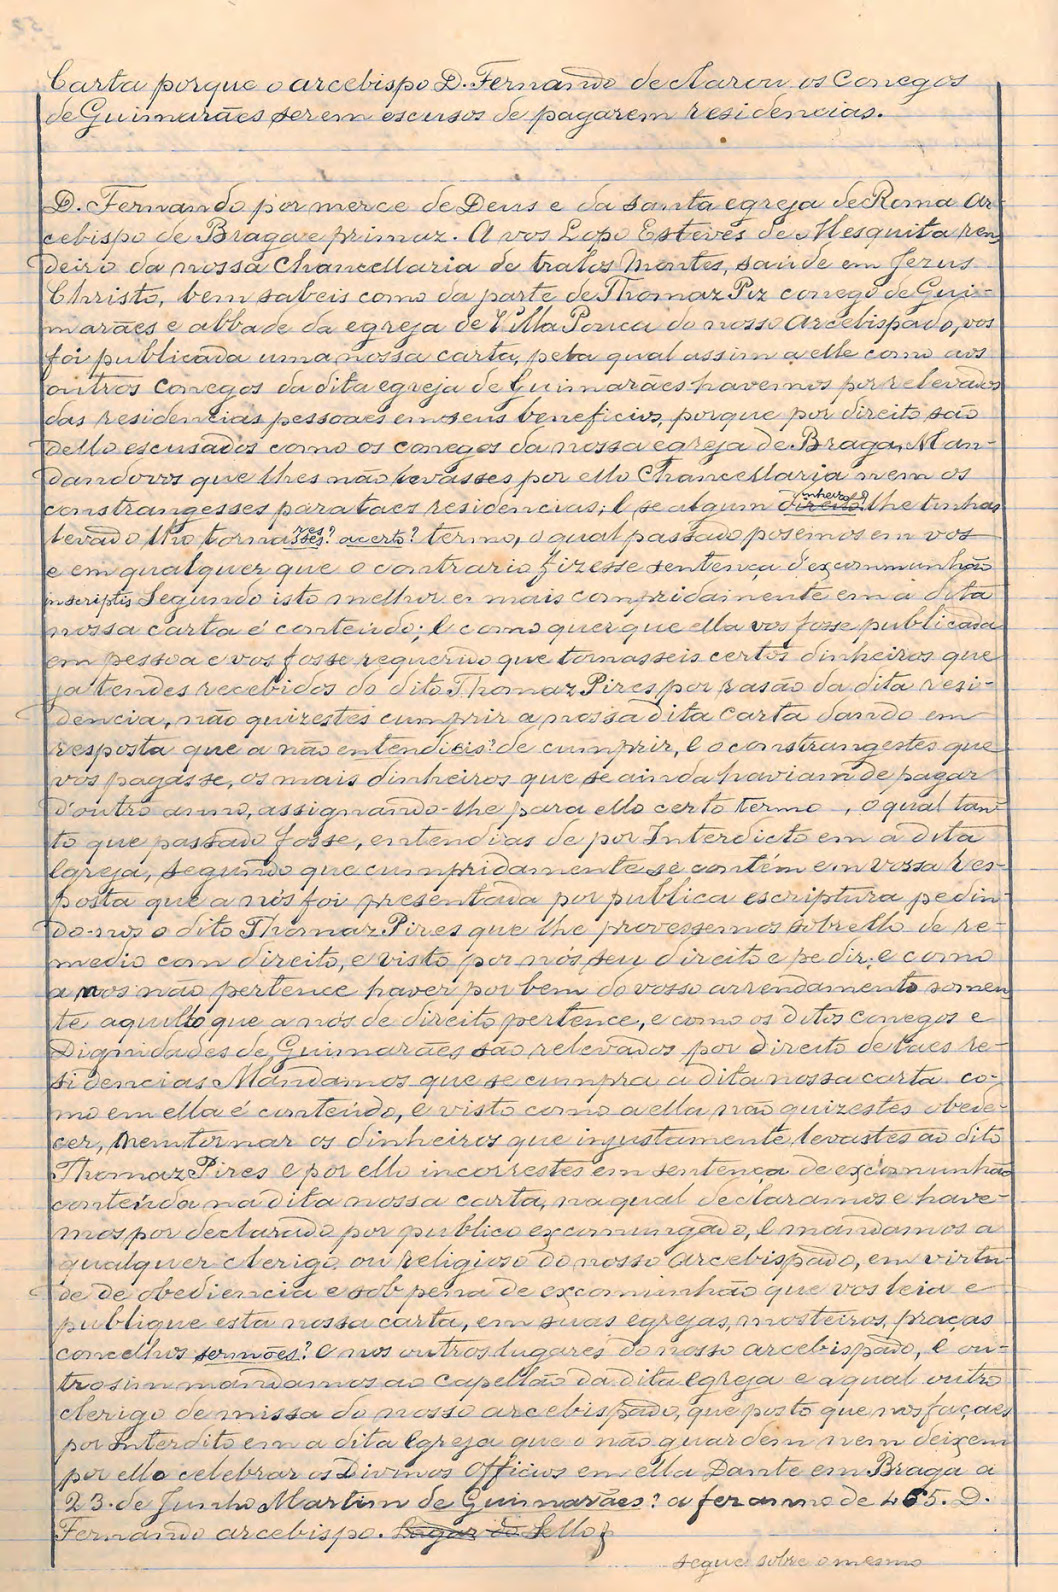 Carta porque o arcebispo D. Fernando declarou os Conegos
de Guimarães serem escusos de pagarem residencias.
D. Fernando por merce de Deus e da santa egreja de Roma Ar-
cebispo de Braga e primaz. A vos Lopo Esteves de Mesquita ren-
deiro da nossa Chancellaria de tralos Montes, saúde em Jezus
Christo, bem sabeis como da parte de Thomaz Piz conego de Gui-
marães e abbade da egreja de Villa Pouca do nosso Arcebispado, vos
foi publicada uma nossa carta, pela qual assim a elle como aos
outros Conegos da dita egreja de Guimarães havemos por relevados
das residencias pessoaes em seus beneficios, porque por direito são
dello escusados como os conegos da nossa egreja de Braga, Man-
dandovos que lhes não levasses por ello Chancellaria nem os
constrangesses para taes residencias; E se algum direito? lhe tinhas
levado lho tornasses? acerto? termo, o qual passado posemos em vos
e em qualquer que o contrario fizesse sentença d'excommunhão
inscriptis Segundo isto melhor e mais compridamente em a dita
nossa carta é conteúdo; E como quer que ella vos fosse publicada
em pessoa e vos fosse requerido que tornasseis certos dinheiros que
ja tendes recebidos do dito Thomaz Pires por rasão da dita resi-
dencia, não quizestes cumprir a nossa dita carta dando em
resposta que a não entendieis? de cumprir, E o constrangestes que
vos pagasse, os mais dinheiros que se ainda haviam de pagar
d'outro anno, assignando-lhe para ello certo termo, o qual tan-
to que passado fosse, entendias de por Interdicto em a dita
Igreja, segundo que cumpridamente se contém em vossa res-
posta que a nós foi presentada por publica escriptura pedin-
do-nos o dito Thomaz Pires que lhe provessemos sobr'ello de re-
medio com direito, e visto por nós seu direito e pedir; e como
a nos não pertence haver por bem do vosso arrendamento somen
te aquillo que a nós de direito pertence, e como os ditos conegos e
Dignidades de Guimarães são relevados por direito de taes re-
sidencias Mandamos que se cumpra a dita nossa carta co-
mo em ella é conteúdo, E visto como a ella não quizestes obede-
cer, Nem tornar os dinheiros que injustamente levastes ao dito
Thomaz Pires e por ello incorrestes em sentença de excomunhão
conteúda na dita nossa carta, na qual declaramos e have-
mos por declarado por publico excomungado, E mandamos a
qualquer clerigo ou religioso do nosso Arcebispado, em virtu-
de de obediencia e sob pena de excomunhão que vos leia e
publique esta nossa carta, em suas egrejas, mosteiros, praças
concelhos sermões? e nos outros lugares do nosso arcebispado, E ou-
trosim mandamos ao Capellão da dita Egreja e a qual outro
clerigo de missa do nosso arcebispado, que posto que nos façaes
por Interdito em a dita Egreja que o não guardem nem deixem
por ello celebrar os Divinos Officios em ella Dante em Braga a
23. de Junho Martim de Guimarães? a fer anno de 465. D.
Fernando arcebispo. Lugar do Sello
segue sobre o mesmo